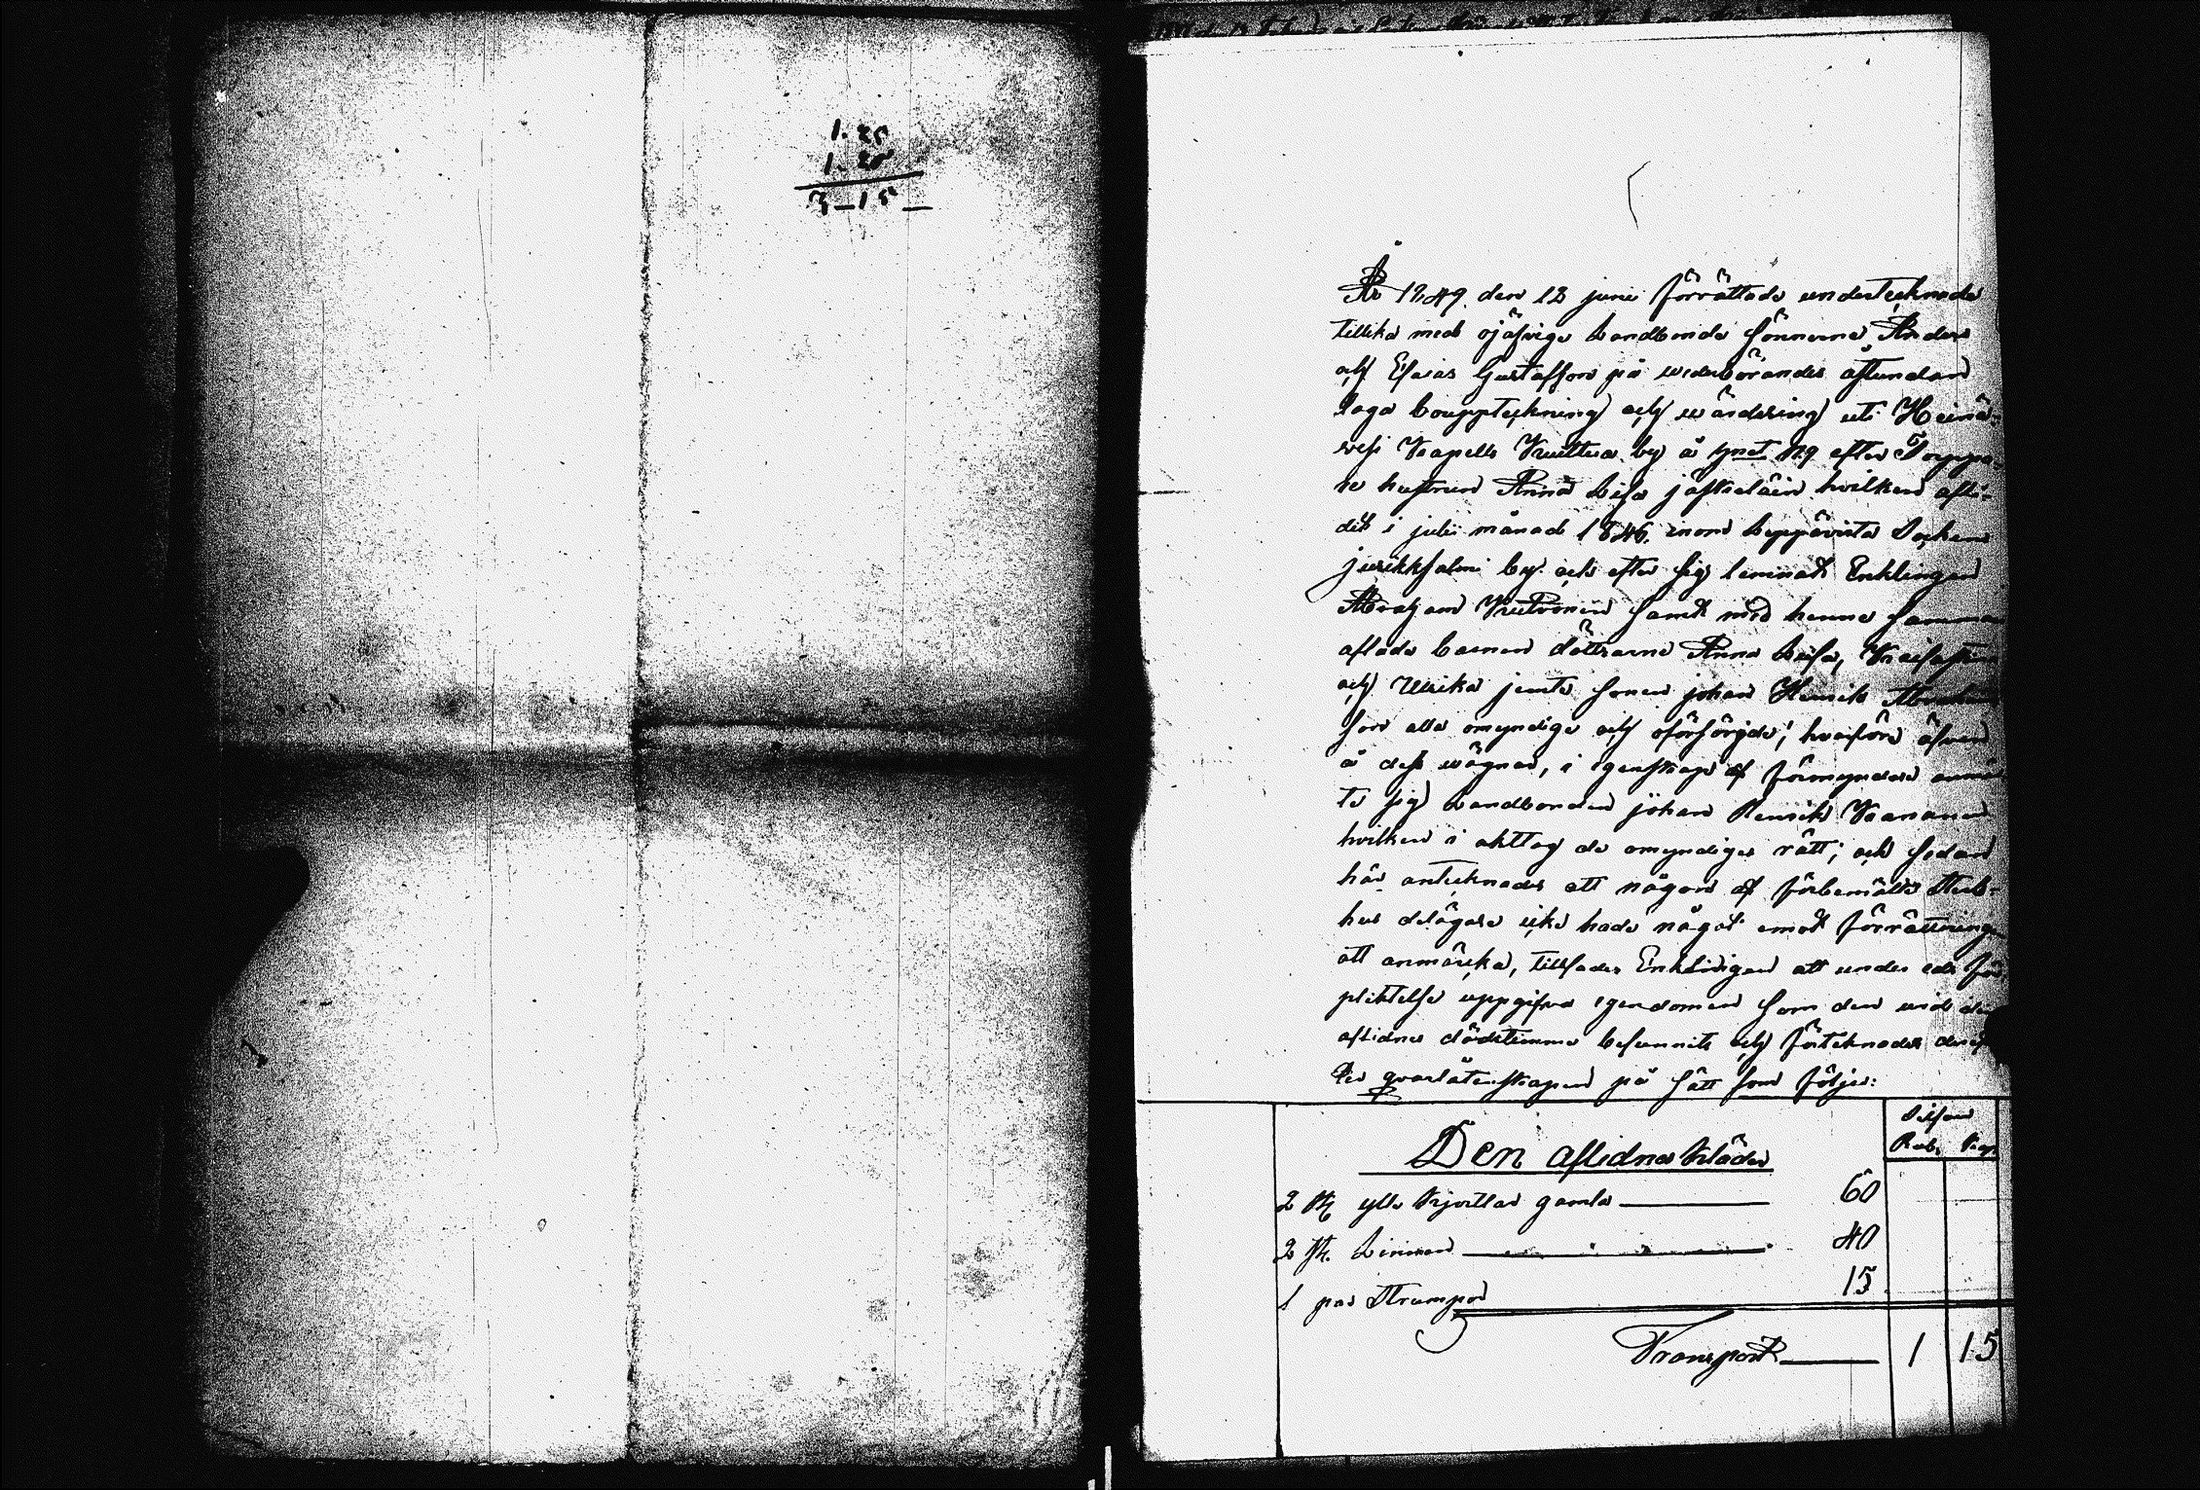 1.20
1.20
3-15-
År 1849 den 12 junii förrättade undertecknade
tillika med ojäfvige Landbonde Sönnerne Anders
och Esaias Gustafsson på wederbörandes åstundan
Laga bouppteckning och wärdering uti Heinä-
vesi Kapells by å efter Torppa-
re hustrun Anna Lisa jääskeläin hvilken afli-
dit i julii månad 1846 inom Leppävirta Socken
by och efter sig lemnat Enklingen
Abraham samt med henne Samman
aflade barnen döttrarne Anna Lisa,
och Ulrika jemte Sonen johan Henrik Abraham
son alla omyndige och oförsörgde; hvarföre äfven
å dess wägnar, i egenskap af förmyndare anmä
te sig Landbonden johan Henrik
hvilken i akttog de omyndiges rätt; och sedan
här antecknades att någon af förbemälte Sterb-
hus delägare icke hade något emot förrättningen
att anmärka, tillsades Enklingen att under eds för
pliktelse uppgifva egendomen Som den wid den
aflidnes dödstimma befunnits och förteknades
qvarlåtenskapen på Sätt Som följer:
Silfver
Rub. Kop.
Den aflidnes kläder
2 st ylle kjortlar gamla 60
2 st. Linnen 40
1 par Strumpor 15
Transport 1 15